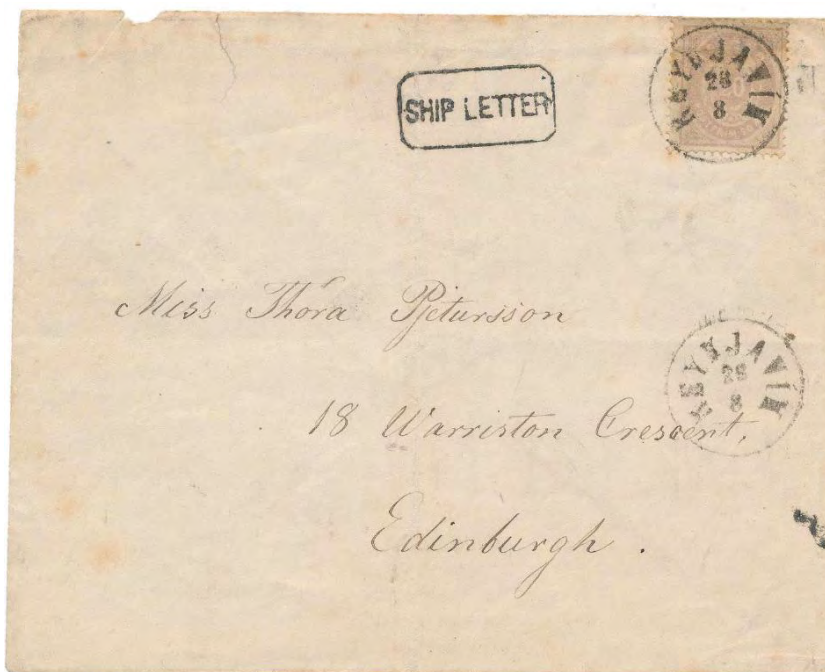 SHIP LETTER
REYKJAVÍK
28
8
Miss Thóra Pjetursson
REYKJAVÍK
28
8
18 Warriston Crescent,
Edinburgh.